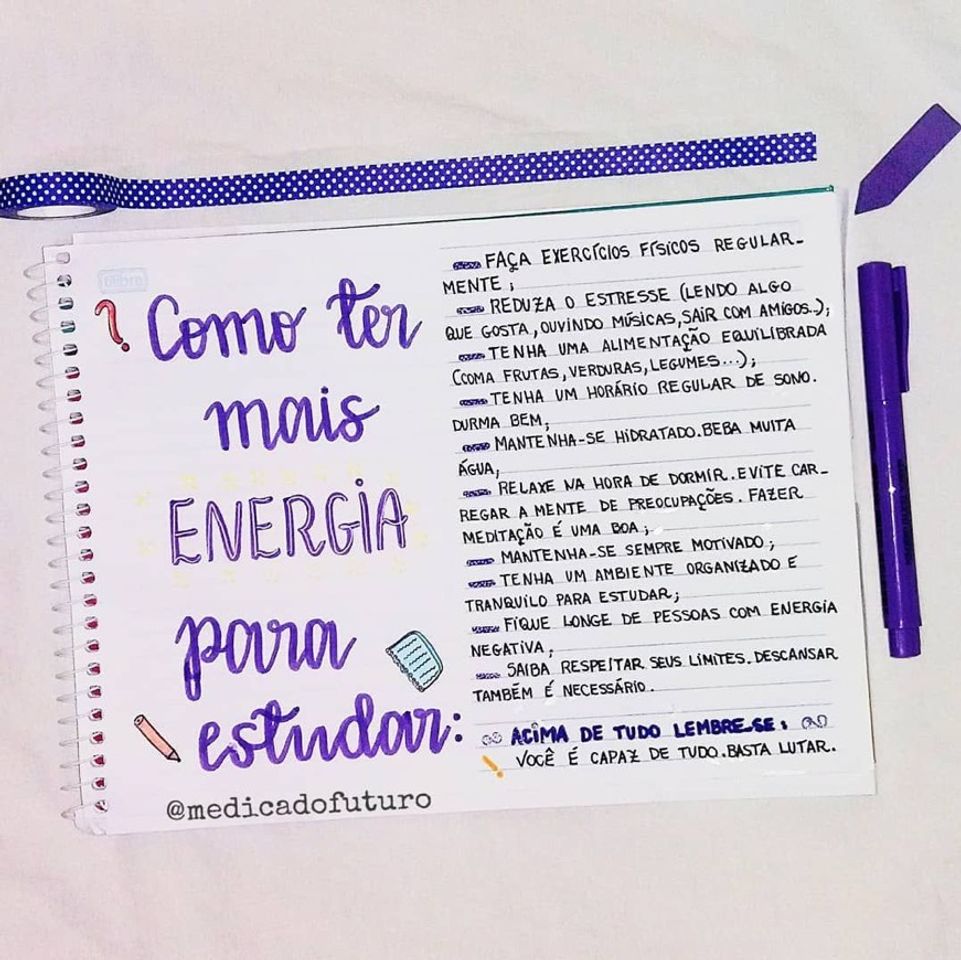 tilibra
Como ter
mais
ENERGIA
para
estudar:
@medicadofuturo
FAÇA EXERCÍCIOS FÍSICOS REGULAR-
MENTE;
REDUZA O ESTRESSE (LENDO ALGO
QUE GOSTA, OUVINDO MÚSICAS, SAIR COM AMIGOS..);
TENHA UMA ALIMENTAÇÃO EQUILIBRADA
(COMA FRUTAS, VERDURAS, LEGUMES...);
TENHA UM HORÁRIO REGULAR DE SONO.
DURMA BEM;
MANTENHA-SE HIDRATADO. BEBA MUITA
ÁGUA;
RELAXE NA HORA DE DORMIR. EVITE CAR-
REGAR A MENTE DE PREOCUPAÇÕES. FAZER
MEDITAÇÃO É UMA BOA;
MANTENHA-SE SEMPRE MOTIVADO;
TENHA UM AMBIENTE ORGANIZADO E
TRANQUILO PARA ESTUDAR;
FIQUE LONGE DE PESSOAS COM ENERGIA
NEGATIVA;
SAIBA RESPEITAR SEUS LIMITES. DESCANSAR
TAMBÉM É NECESSÁRIO.
ACIMA DE TUDO LEMBRE-SE:
VOCÊ É CAPAZ DE TUDO. BASTA LUTAR.